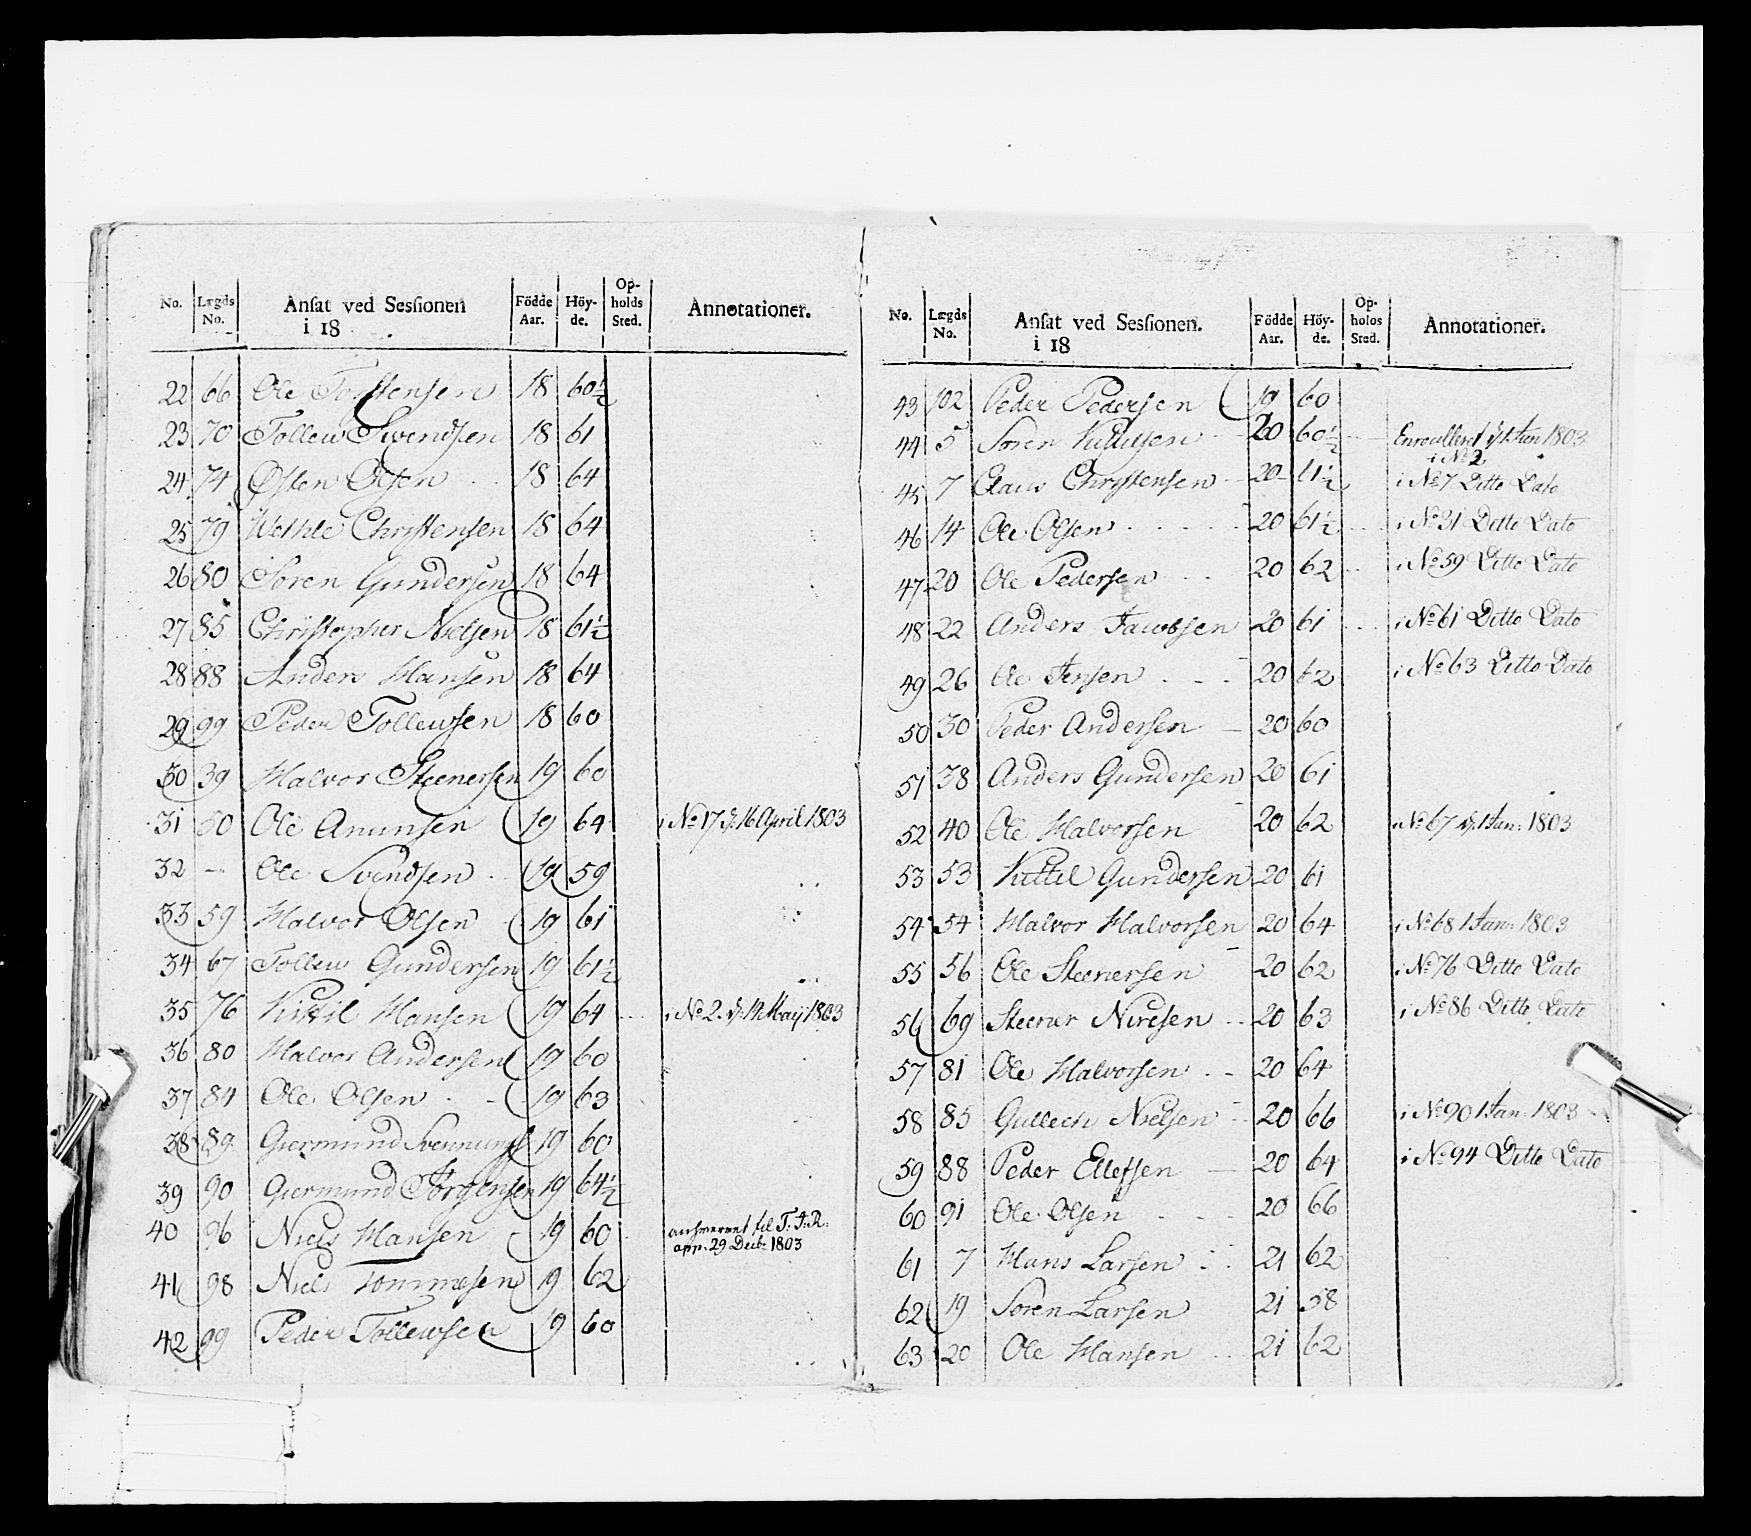 No. Lægds No. Ansat ved Sessionen i 18 Födde Aar. Höyde. Opholds Sted. Annotationer.
22 66 Ole Torstensen 18 60½
23 70 Tollew Svendsen 18 61
24 74 Østen Olsen 18 64
25 79 Wethle Christensen 18 64
26 80 Sören Gundersen 18 64
27 85 Christopher Nielsen 18 61½
28 88 Anders Hansen 18 64
29 99 Peder Tollewsen 18 60
30 39 Halvor Steenersen 19 60
31 50 Ole Amunsen 19 64 i No 17 d: 16 April 1803
32 - Ole Svendsen 19 59
33 59 Halvor Olsen 19 61
34 67 Tollew Gundersen 19 61½
35 76 Kittil Hansen 19 64 i No 2. d: 14 May 1803
36 80 Halvor Andersen 19 60
37 84 Ole Olsen 19 63
38 89 Giermund Svennungs 19 60
39 90 Giermund Jörgensen 19 64½
40 96 Niels Hansen 19 60 til T: J: R:
app: 29 Decb: 1803
41 98 Niels Tommesen 19 62
42 99 Peder Tollewsen 19 60
No. Lægds No. Ansat ved Sessionen. i 18 Födde Aar. Höyde. Opholds Sted. Annotationer.
43 102 Peder Pedersen 19 60
44 5 Sören Kittilsen 20 60½ Enroulleret d: 1 Jan 1803
i No 2
45 7 Claus Christensen 20 61½ i No 7 Ditto Dato
46 14 Ole Olsen 20 61½ i No 31 Ditto Dato
47 20 Ole Pedersen 20 62 i No 59 Ditto Dato
48 22 Anders Jacobsen 20 61 i No 61 Ditto Dato
49 26 Ole Jensen 20 62 i No 63 Ditto Dato
50 30 Peder Andersen 20 60
51 38 Anders Gundersen 20 61
52 40 Ole Halvorsen 20 62 i No 67 d: 1 Jan: 1803
53 53 Kittil Gundersen 20 61
54 54 Halvor Halvorsen 20 64 i No 68 1 Jan: 1803
55 56 Ole Steenersen 20 62 i No 76 Ditto Dato
56 69 Steener Nirisen 20 63 i No 86 Ditto Dato
57 81 Ole Halvorsen 20 64
58 85 Gullech Nielsen 20 66 i No 90 1 Jan: 1803
59 88 Peder Ellefsen 20 64 i No 94 Ditto Dato
60 91 Ole Olsen 20 66
61 7 Hans Larsen 21 62
62 19 Sören Larsen 21 58
63 20 Ole Hansen 21 62